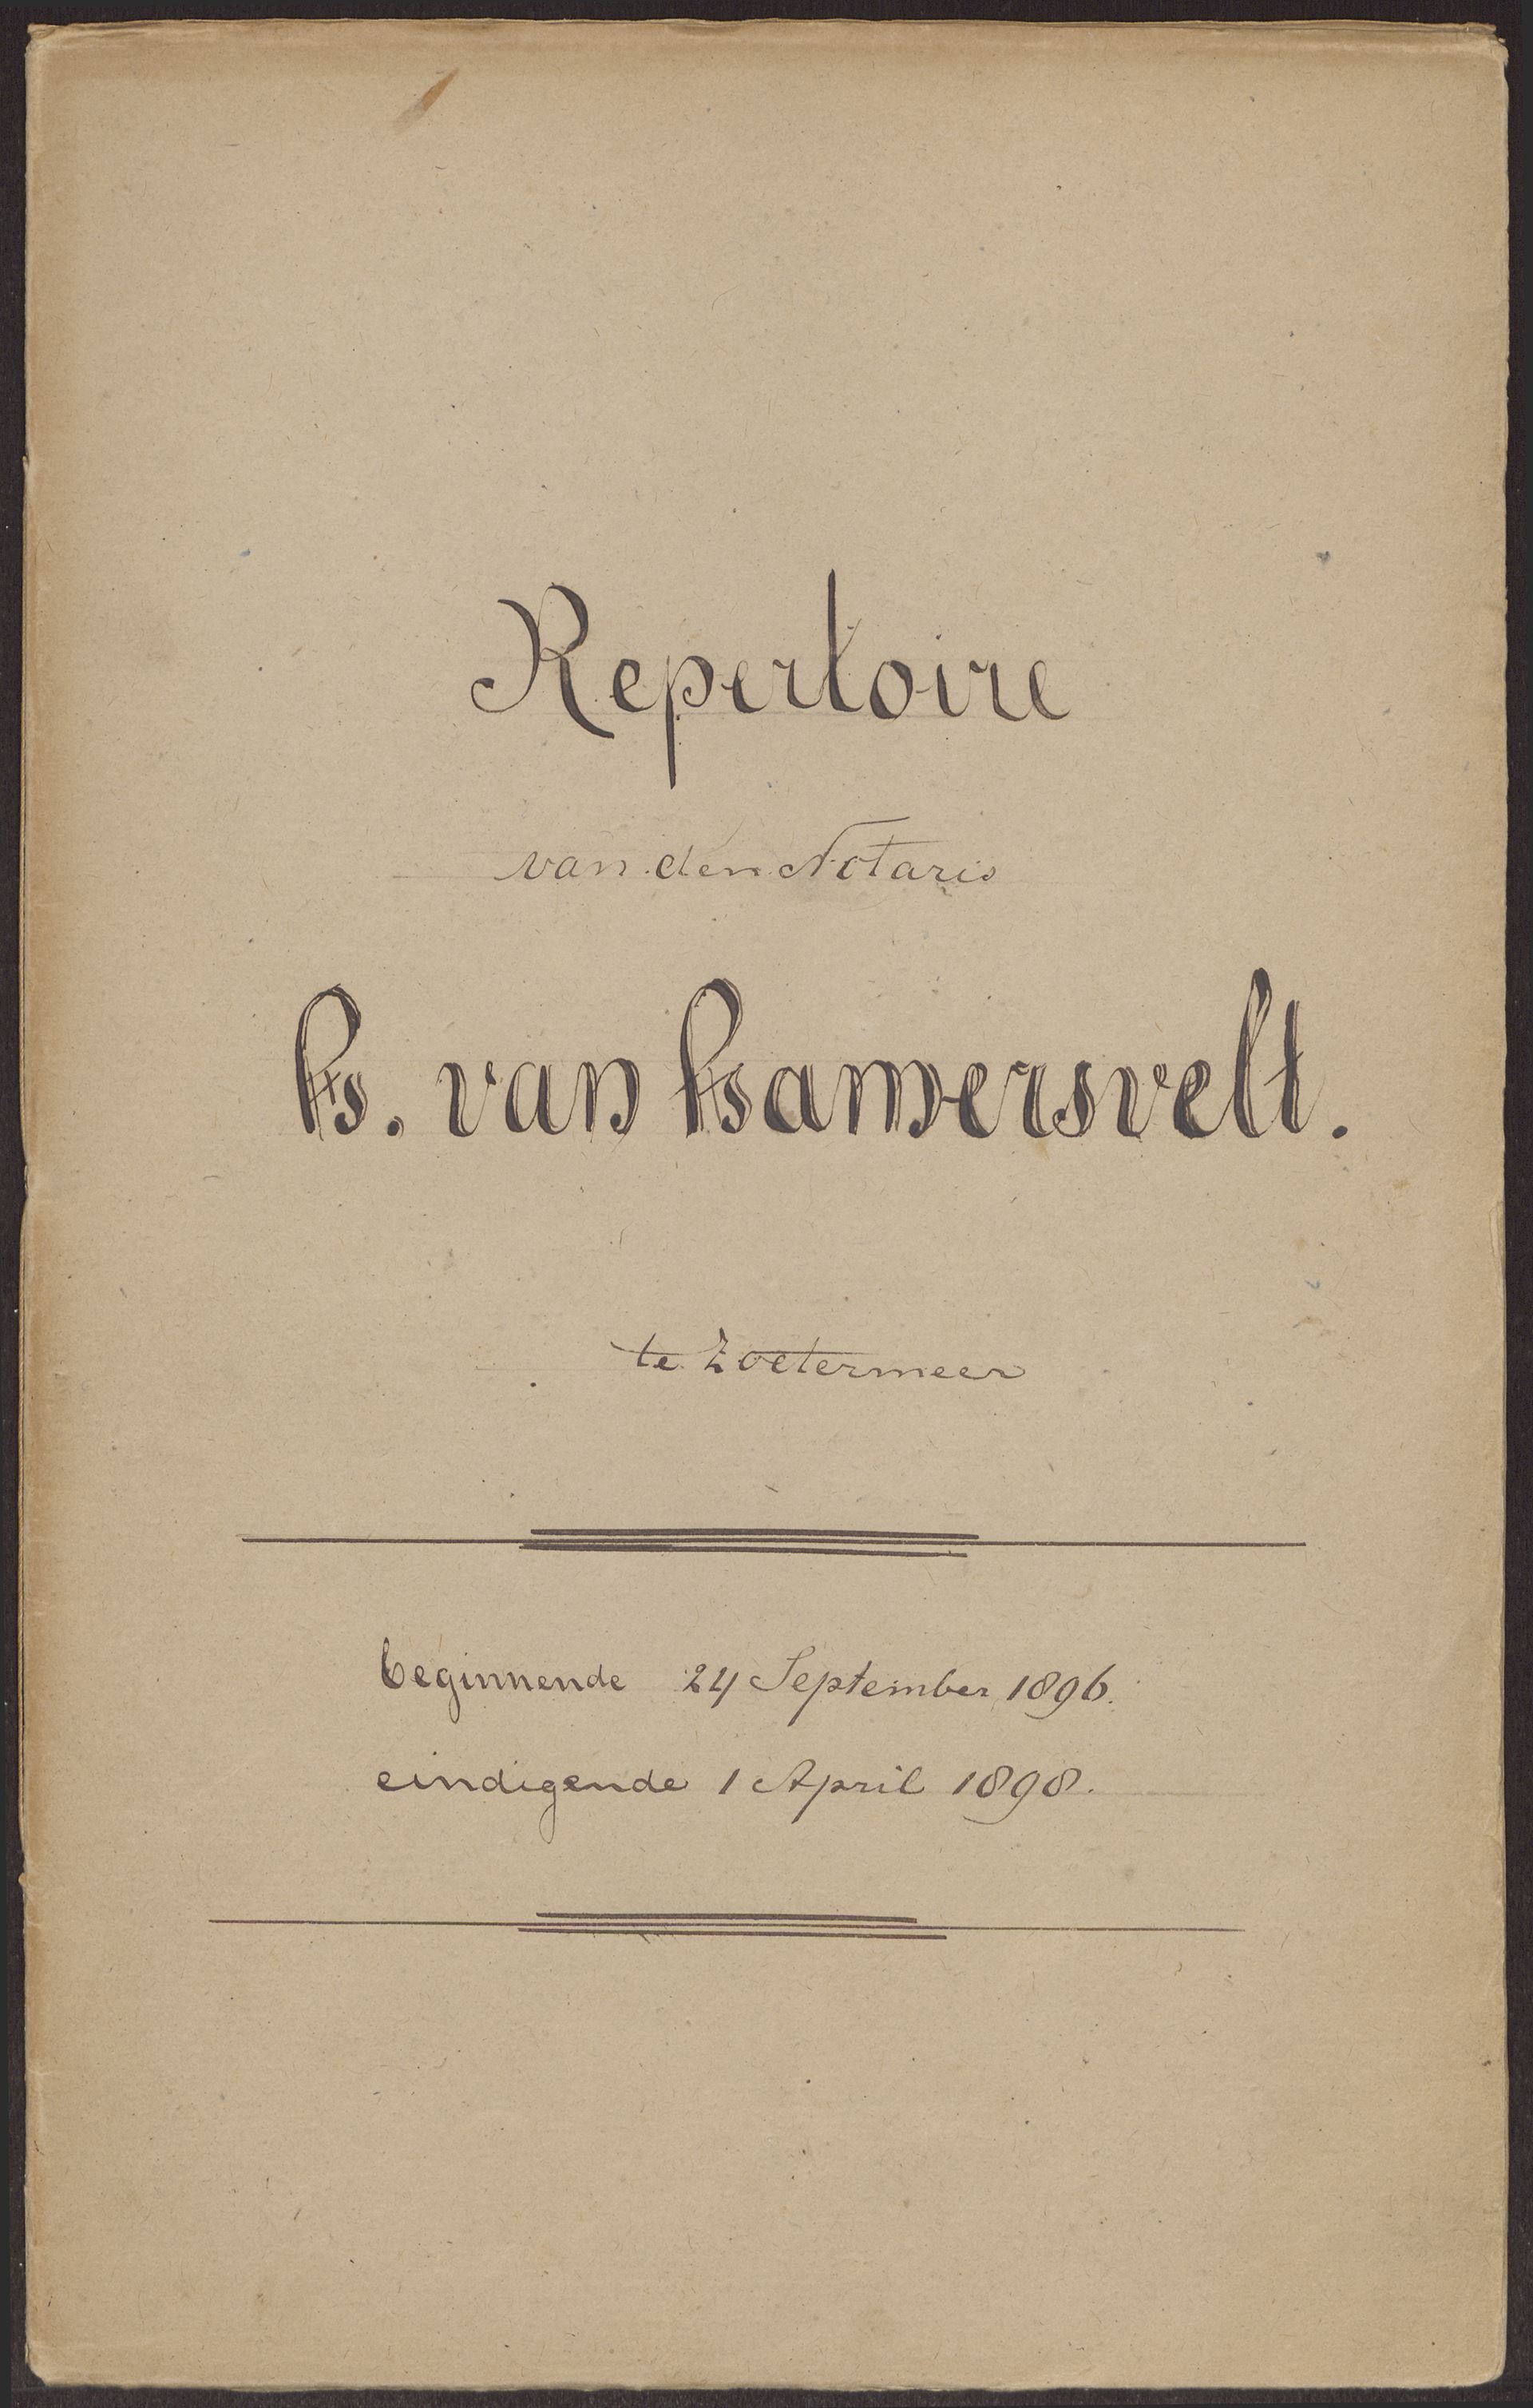 Repertoire
van den Notaris
H. van Hamersvelt.
te Zoetermeer
beginnende 24 September 1896.
eindigende 1 April 1898.